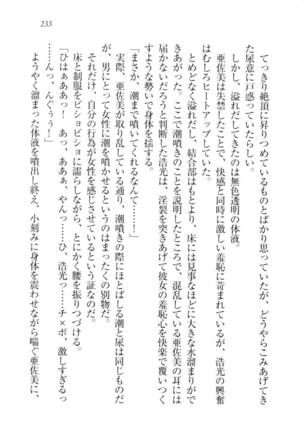 233
てっきり絶頂に昇りつめているものとばかり思っていたが、どうやらこみあげてき
た尿意に戸惑っていたらしい。
しかし、溢れだしてきたのは無色透明の体液。
亜佐美は失禁したことで、快感と同時に激しい羞恥に苛まれているが、浩光の興奮
はむしろヒートアップしていた。
とめどなく溢れだし、結合部はもとより、床には見事なほどに大きな水溜まりがで
きあがった。ここで潮噴きのことを説明したところで、混乱している亜佐美の耳には
届かないだろうと判断した浩光は、淫裂を突きあげて彼女の羞恥心を快楽で覆いつく
すような勢いで身体を揺する。
「まさか、潮まで噴いてくれるなんて……」
実際、亜佐美が取り乱している通り、潮噴きの際にほとばしる潮と尿は同じものだ
が、男にとって女性に潮を噴かせるというのはまったくの別物だ。
それだけ、自分の行為が女性を感じさせているという証なのだ。
床と制服をビショビショに濡らしながら、とにかく腰を振りつづける。
「ひはぁああっ！　あっ、あああ、やんっ……ひ、浩光っ……チ×ポ、激しすぎるっ
……んっ、んぐぅぅ！」
ようやく溜まった体液を噴出し終え、小刻みに身体を震わせながら喘ぐ亜佐美に、